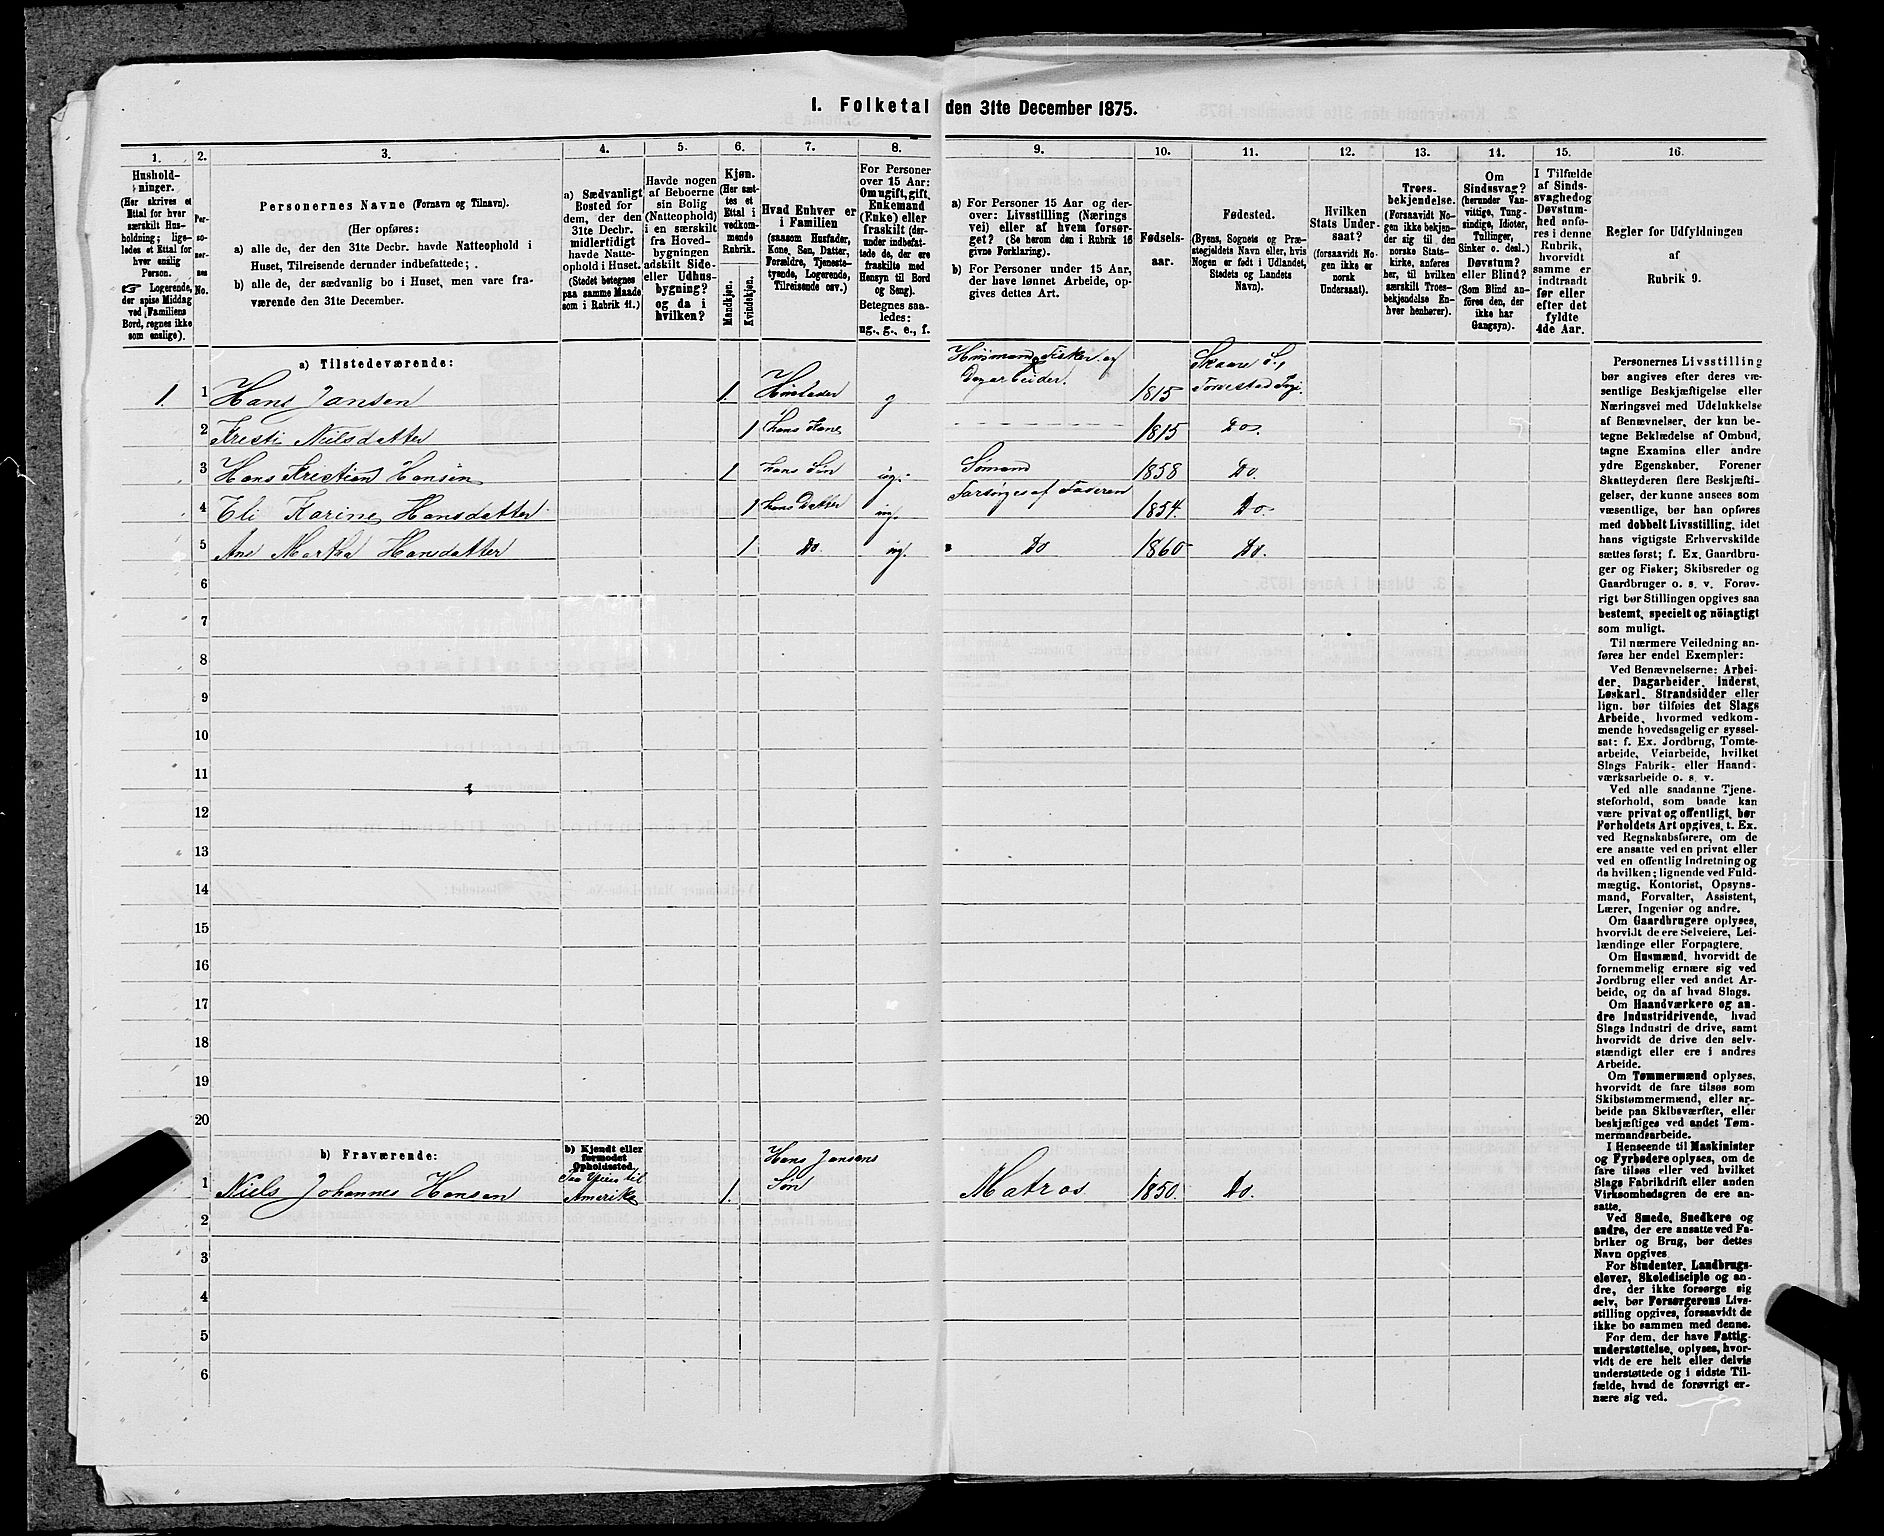 I. Folketal den 31te December 1875.
1. 2. 3. 4. 5. 6. 7. 8. 9. 10. 11. 12. 13. 14. 15. 16.
Hushold-
ninger.
(Her skrives et
Ettal for hver
særskilt Hus-
holdning; lige-
ledes et Ettal for
hver enslig
Person.
☞ Logerende,
der spise Middag
ved Familiens
Bord, regnes ikke
som enslige).
Per-
so-
ner-
nes
No.
Personernes Navne (Fornavn og Tilnavn).
(Her opføres:
a) alle de, der den 31te Decbr. havde Natteophold i
Huset, Tilreisende derunder indbefattede;
b) alle de, der sædvanlig bo i Huset, men vare fra-
værende den 31te December.
a) Sædvanligt
Bosted for
dem, der den
31te Decbr.
midlertidigt
havde Natte-
ophold i Huset.
(Stedet betegnes
paa samme Maade
som i Rubrik 11.)
Havde nogen
af Beboerne
sin Bolig
(Natteophold)
i en særskilt
fra Hoved-
bygningen
adskilt Side-
eller Udhus-
bygning?
og da i
hvilken?
Kjøn.
(Her sæt-
tes et
Ettal i
vedkom-
mende
Rubrik.
Mandkjøn.
Kvindekjøn.
Hvad Enhver er
i Familien
(saasom Husfader,
Kone, Søn, Datter,
Forældre, Tjeneste-
tyende, Logerende,
Tilreisende osv.)
For Personer
over 15 Aar:
Om ugift, gift,
Enkemand
(Enke) eller
fraskilt (der-
under indbefat-
tede de, der ere
fraskilte med
Hensyn til Bord
og Seng).
Betegnes saa-
ledes:
ug., g., e., f.
a) For Personer 15 Aar og der-
over: Livsstilling (Nærings
vei) eller af hvem forsør-
get? (Se herom den i Rubrik 16
givne Forklaring).
b) For Personer under 15 Aar,
der have lønnet Arbeide, op-
gives dettes Art.
Fødsels-
aar.
Fødested.
(Byens, Sognets og Præ-
stegjeldets Navn eller, hvis
Nogen er født i Udlandet,
Stedets og Landets
Navn).
Hvilken
Stats Under-
saat?
(forsaavidt No-
gen ikke er
norsk
Undersaat).
Troes-
bekjendelse.
(Forsaavidt No-
gen ikke bekjen-
der sig til den
norske Stats-
kirke, anføres
her, til hvilken
særskilt Troes-
bekjendelse En-
hver henhører).
Om
Sindssvag?
(herunder Van-
vittige, Tung-
sindige, Idioter,
Tullinger,
Sinker o. desl.)
Døvstum?
eller Blind?
(Som Blind an-
føres den, der
ikke har
Gangsyn).
I Tilfælde
af Sinds-
svaghed og
Døvstum-
hed anfø-
res i denne
Rubrik,
hvorvidt
samme er
indtraadt
før eller
efter det
fyldte
4de Aar.
Regler for Udfyldningen
af
Rubrik 9.
a) Tilstedeværende:
1. 1 Hans Jansen 1 Husfader g Husmand Fisker og Dagarbeider. 1815 Skaare S., Torvestad Prgj.
2 Kresti Nielsdatter 1 hans Kone 1815 Do.
3 Hans Kristian Hansen 1 hans Søn ug. Sømand 1858 Do.
4 Eli Karine Hansdatter 1 hans Datter ug. Forsørges af Faderen 1854. Do.
5 Ane Martha Hansdatter 1 Do. ug. Do 1860 Do.
6
7
8
9
10
11
12
13
14
15
16
17
18
19
20
b) Fraværende:
b) Kjendt eller
formodet
Opholdssted.
1 Niels Johannes Hansen Paa Veien til Amerika 1. Hans Jansens Søn Matros 1850. Do.
2
3
4
5
6
Personernes Livsstilling
bør angives efter deres væ-
sentlige Beskjæftigelse eller
Næringsvei med Udelukkelse
af Benævnelser, der kun be-
tegne Beklædelse af Ombud,
tagne Examina eller andre
ydre Egenskaber. Forener
Skatteyderen flere Beskjæfti-
gelser, der kunne ansees som
væsentlige, bør han opføres
med dobbelt Livsstilling, idet
hans vigtigste Erhvervskilde
sættes først; f. Ex. Gaardbru-
ger og Fisker; Skibsreder og
Gaardbruger o. s. v. Forøv-
rigt bør Stillingen opgives saa
bestemt, specielt og nöiagtigt
som muligt.
Til nærmere Veiledning an-
føres her endel Exempler:
Ved Benævnelserne: Arbei-
der, Dagarbeider, Inderst,
Løskarl, Strandsidder eller
lign. bør tilføies det Slags
Arbeide, hvormed vedkom-
mende hovedsagelig er syssel-
sat: f. Ex. Jordbrug, Tomte-
arbeide, Veiarbeide, hvilket
Slags Fabrik- eller Haand-
værksarbeide o. s. v.
Ved alle saadanne Tjene-
steforhold, som baade kan
være privat og offentligt, bør
Forholdets Art opgives, t. Ex.
ved Regnskabsførere, om de
ere ansatte ved en privat eller
ved en offentlig Indretning og
da hvilken; lignende ved Fuld-
mægtig, Kontorist, Opsyns-
mand, Forvalter, Assistent,
Lærer, Ingeniør og andre.
Om Gaardbrugere oplyses,
hvorvidt de ere Selveiere, Lei-
lændinge eller Forpagtere.
Om Husmænd, hvorvidt de
fornemmelig ernære sig ved
Jordbrug eller ved andet Ar-
beide, og da af hvad Slags.
Om Haandværkere og an-
dre Industridrivende, hvad
Slags Industri de drive, samt
hvorvidt de drive den selv-
stændigt eller ere i andres
Arbeide.
Om Tømmermænd oplyses,
hvorvidt de fare tilsøs som
Skibstømmermænd, eller ar-
beide paa Skibsværfter, eller
beskjæftiges ved andet Tøm-
mermandsarbeide.
I Henseende til Maskinister
og Fyrbødere oplyses, om de
fare tilsøs eller ved hvilket
Slags Fabrikdrift eller anden
Virksomhedsgren de ere an-
satte.
Ved Smede, Snedkere og
andre, der ere ansatte ved Fa-
briker og Brug, bør dettes
Navn opgives
For Studenter, Landbrugs-
elever, Skoledisciple og an-
dre, der ikke forsørge sig
selv, bør Forsørgerens Livs-
stilling opgives, forsaavidt de
ikke bo sammen med denne.
For dem, der have Fattig-
understøttelse, oplyses, hvor-
vidt de ere helt eller delvis
understøttede og i sidste Til-
fælde, hvad de forøvrigt er-
nære sig ved.